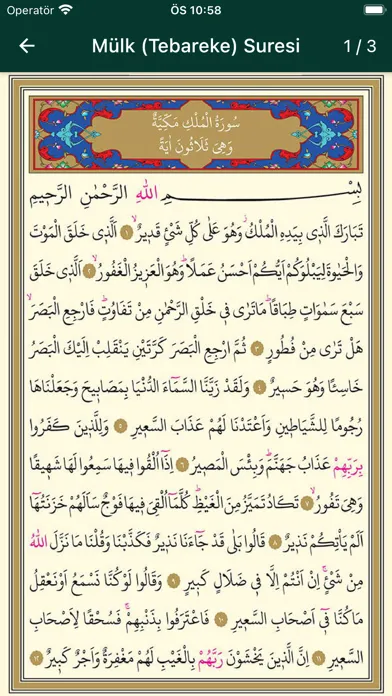 Operatör ÖS 10:58
Mülk (Tebareke) Suresi 1 / 3
سُورَةُ الْمُلْكِ مَكِّيَّةٌ
وَهِىَ ثَلَاثُونَ اٰيَةً
بِسْمِ اللّٰهِ الرَّحْمٰنِ الرَّح۪يمِ
تَبَارَكَ الَّذ۪ي بِيَدِهِ الْمُلْكُۘ وَهُوَ عَلٰى كُلِّ شَيْءٍ قَد۪يرٌۙ ﴿١﴾ اَلَّذ۪ي خَلَقَ الْمَوْتَ
وَالْحَيٰوةَ لِيَبْلُوَكُمْ اَيُّكُمْ اَحْسَنُ عَمَلًاۜ وَهُوَ الْعَز۪يزُ الْغَفُورُۙ ﴿٢﴾ اَلَّذ۪ي خَلَقَ
سَبْعَ سَمٰوَاتٍ طِبَاقًاۜ مَا تَرٰى ف۪ي خَلْقِ الرَّحْمٰنِ مِنْ تَفَاوُتٍۜ فَارْجِعِ الْبَصَرَۙ
هَلْ تَرٰى مِنْ فُطُورٍ ﴿٣﴾ ثُمَّ ارْجِعِ الْبَصَرَ كَرَّتَيْنِ يَنْقَلِبْ اِلَيْكَ الْبَصَرُ
خَاسِئًا وَهُوَ حَس۪يرٌ ﴿٤﴾ وَلَقَدْ زَيَّنَّا السَّمَٓاءَ الدُّنْيَا بِمَصَاب۪يحَ وَجَعَلْنَاهَا
رُجُومًا لِلشَّيَاط۪ينِ وَاَعْتَدْنَا لَهُمْ عَذَابَ السَّع۪يرِ ﴿٥﴾ وَلِلَّذ۪ينَ كَفَرُوا
بِرَبِّهِمْ عَذَابُ جَهَنَّمَۜ وَبِئْسَ الْمَص۪يرُ ﴿٦﴾ اِذَٓا اُلْقُوا ف۪يهَا سَمِعُوا لَهَا شَه۪يقًا
وَهِيَ تَفُورُۙ ﴿٧﴾ تَكَادُ تَمَيَّزُ مِنَ الْغَيْظِۜ كُلَّمَٓا اُلْقِيَ ف۪يهَا فَوْجٌ سَاَلَهُمْ خَزَنَتُهَٓا
اَلَمْ يَأْتِكُمْ نَذ۪يرٌ ﴿٨﴾ قَالُوا بَلٰى قَدْ جَٓاءَنَا نَذ۪يرٌ فَكَذَّبْنَا وَقُلْنَا مَا نَزَّلَ اللّٰهُ
مِنْ شَيْءٍۚ اِنْ اَنْتُمْ اِلَّا ف۪ي ضَلَالٍ كَب۪يرٍ ﴿٩﴾ وَقَالُوا لَوْ كُنَّا نَسْمَعُ اَوْ نَعْقِلُ
مَا كُنَّا ف۪ٓي اَصْحَابِ السَّع۪يرِ ﴿١٠﴾ فَاعْتَرَفُوا بِذَنْبِهِمْۚ فَسُحْقًا لِاَصْحَابِ
السَّع۪يرِ ﴿١١﴾ اِنَّ الَّذ۪ينَ يَخْشَوْنَ رَبَّهُمْ بِالْغَيْبِ لَهُمْ مَغْفِرَةٌ وَاَجْرٌ كَب۪يرٌ ﴿١٢﴾